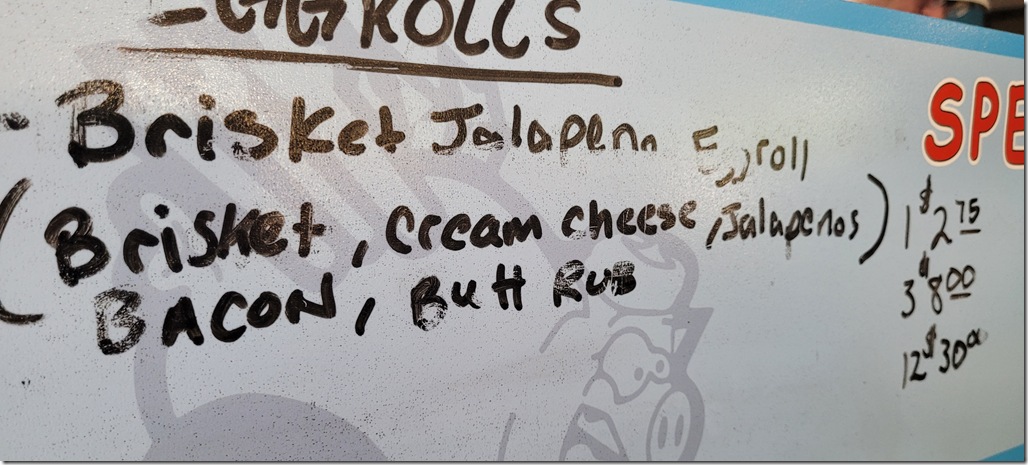 EGGROLLS
- Brisket Jalapeno Eggroll
(Brisket, Cream cheese, Jalapenos)
BACON, Butt Rub
SPE
1 $2.75
3 $8.00
12 $30.00